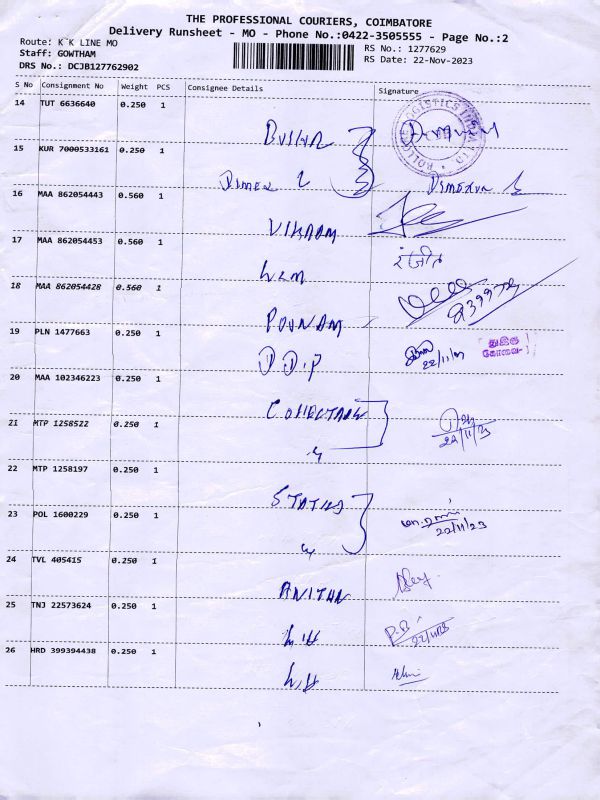 THE PROFESSIONAL COURIERS, COIMBATORE
Delivery Runsheet - MO - Phone No.:0422-3505555 - Page No.:2
Route: K`K LINE MO
RS No.: 1277629
Staff: GOWTHAM
RS Date: 22-Nov-2023
DRS No.: DCJB127762902
S No Consignment No Weight PCS Consignee Details Signature
14 TUT 6636640 0.250 1
15 KUR 7000533161 0.250 1
16 MAA 862054443 0.560 1
VIKRAM
17 MAA 862054453 0.560 1
रंजीत
18 MAA 862054428 0.560 1
POUNAM
19 PLN 1477663 0.250 1
D.D.P
22/11/23
20 MAA 102346223 0.250 1
COLLECTRATE
21 MTP 1258522 0.250 1
22/11/23
22 MTP 1258197 0.250 1
STATUS
23 POL 1600229 0.250 1
22/11/23
24 TVL 405415 0.250 1
ANITHA
25 TNJ 22573624 0.250 1
P.B
22/11/23
26 HRD 399394438 0.250 1